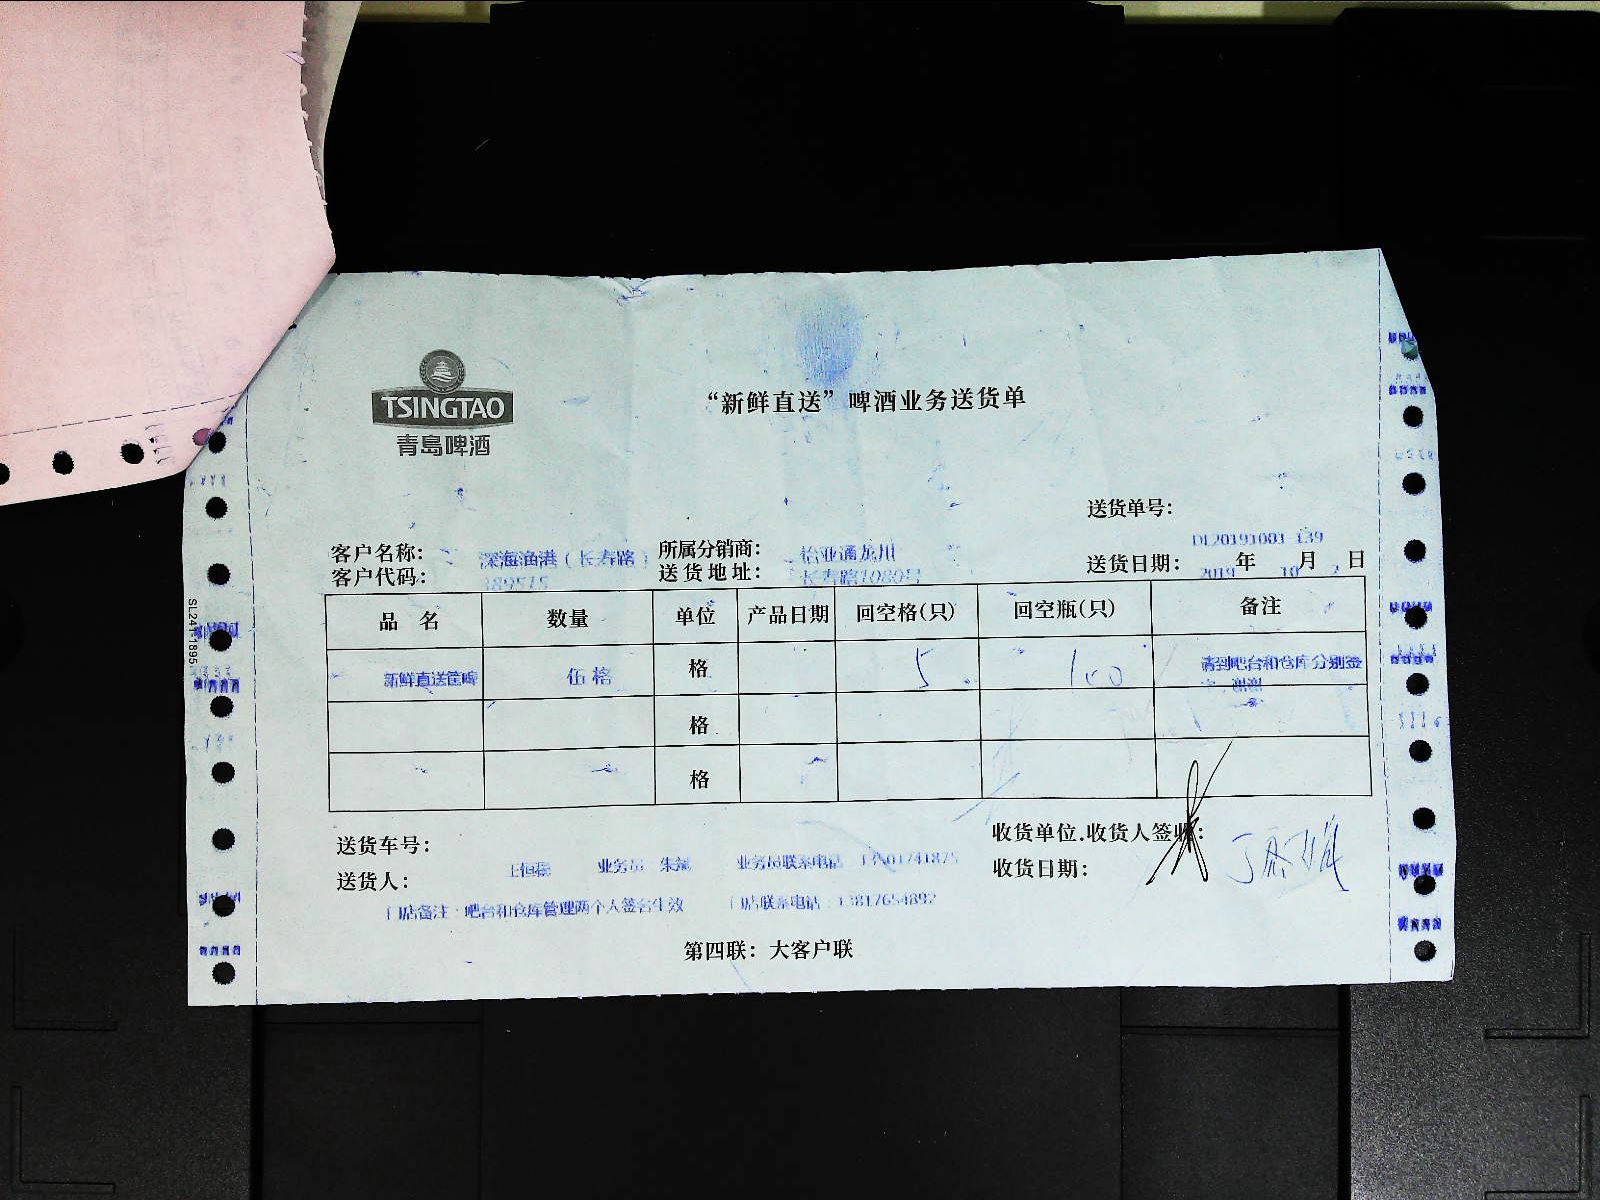 TSINGTAO
青島啤酒
“新鲜直送”啤酒业务送货单
送货单号：
DL20191001-139
客户名称： 深海渔港（长寿路） 所属分销商： 怡亚通龙川
送货日期： 2019 年 10 月 2 日
客户代码： 389515 送货地址： 长寿路1080号
品 名 数量 单位 产品日期 回空格(只) 回空瓶(只) 备注
新鲜直送筐啤 伍格 格 5 100 请到吧台和仓库分别签字，谢谢
格
格
送货车号： 收货单位.收货人签收：
业务员 业务员联系电话
送货人： 收货日期：
门店备注：吧台和仓库管理两个人签名生效 门店联系电话：13817654892
第四联：大客户联
SL241-1895